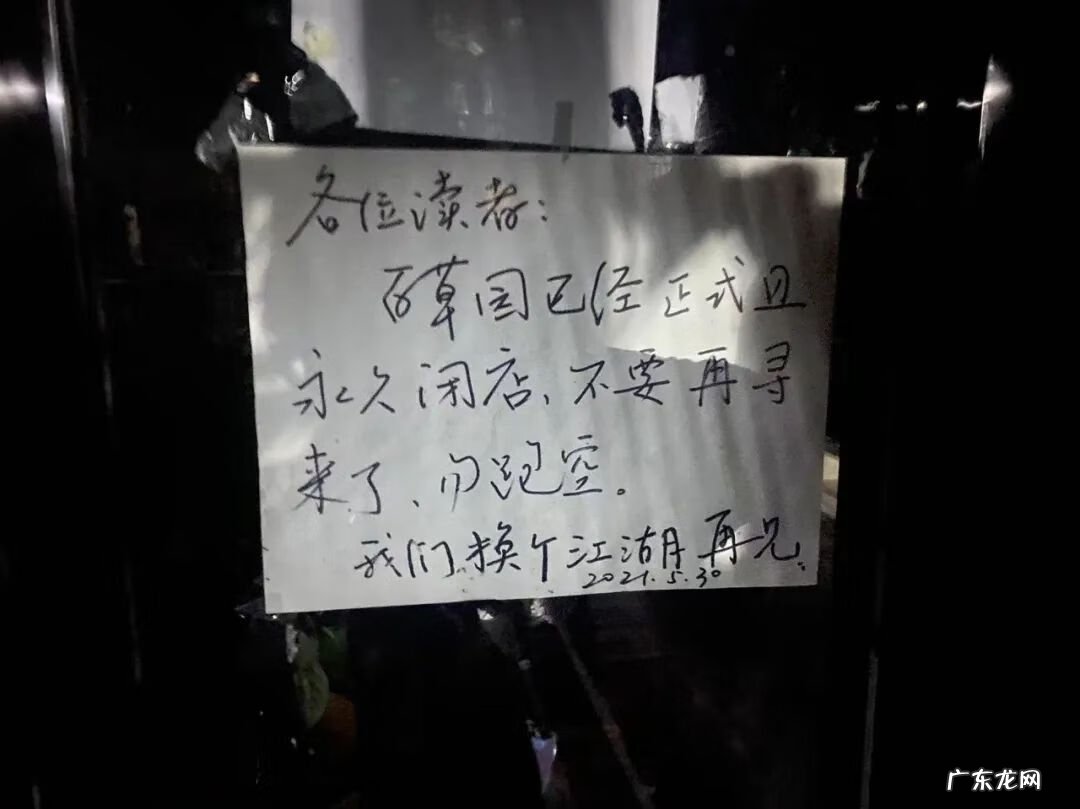 各位读者：
百草园已经正式且
永久闭店、不要再寻
来了、勿跑空。
我们换个江湖再见.
2021.5.30
广东龙网